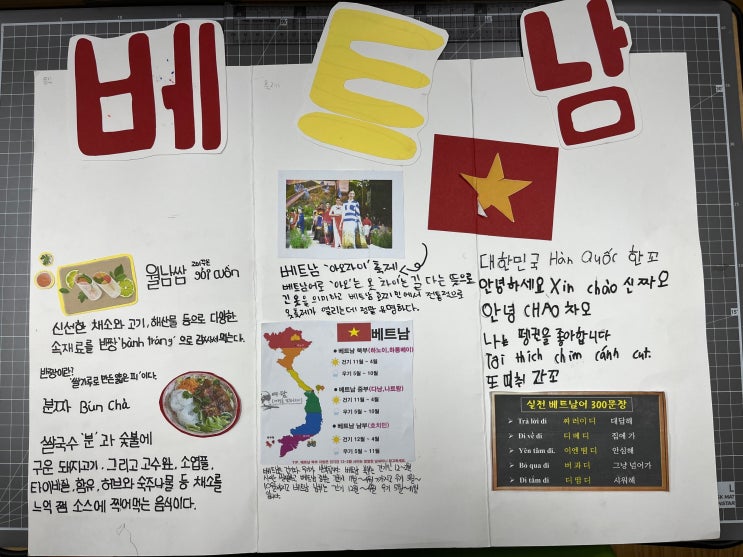 베트남
월남쌈 고이꾸온 gỏi cuốn
신선한 채소와 고기, 해산물 등으로 다양한
속재료를 반짱 'bánh tráng' 으로 감싸서 먹는다.
반짱이란?
'쌀가루로 만든 얇은 피' 이다.
분짜 Bún Chả
쌀국수 '분' 과 숯불에
구운 돼지고기. 그리고 고수와, 소엽풀,
타이바질, 향유, 허브와 숙주나물 등 채소를
느억 쩜 소스에 찍어먹는 음식이다.
베트남 '아오자이' 축제
베트남어로 '아오'는 옷 '자이'는 길다 는 뜻으로
긴 옷을 의미하고 베트남 호찌민에서 전통적으로
옷축제가 열리는데 정말 유명하다.
베트남
베트남 북부(하노이,하롱베이)
건기 11월 ~ 4월
우기 5월 ~ 10월
베트남 중부(다낭,나트랑)
건기 11월 ~ 4월
우기 5월 ~ 10월
베트남 남부(호치민)
건기 12월 ~ 4월
우기 5월 ~ 11월
대한민국 Hàn Quốc 한꿕
안녕하세요 Xin chào 신짜오
안녕 CHAO 차오
나는 펭귄을 좋아합니다
Tại thích chim cánh cụt.
또이 띡 찜 깐꿋
실전 베트남어 300문장
Trả lời đi 짜 러이 디 대답해
Đi về đi 디 베 디 집에 가
Yên tâm đi. 이엔 떰 디 안심해
Bỏ qua đi 버 꽈 디 그냥 넘어가
Đi tắm đi 디 땀 디 샤워해